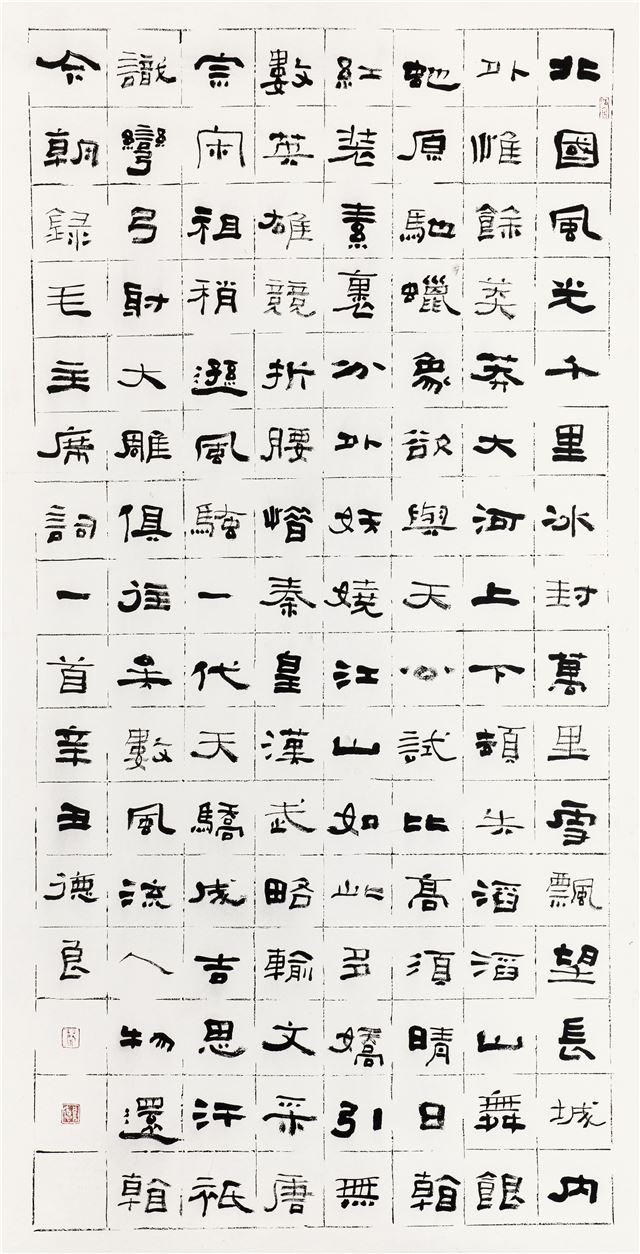 北國風光千里冰封萬里雪飄望長城内
外惟餘莽莽大河上下頓失滔滔山舞銀
虵原馳蠟象欲與天公試比高須晴日看
紅装素裹分外妖嬈江山如此多嬌引無
數英雄競折腰惜秦皇漢武略輸文采唐
宗宋祖稍遜風騷一代天驕成吉思汗祇
識彎弓射大雕俱往矣數風流人物還看
今朝録毛主席詞一首辛丑德良